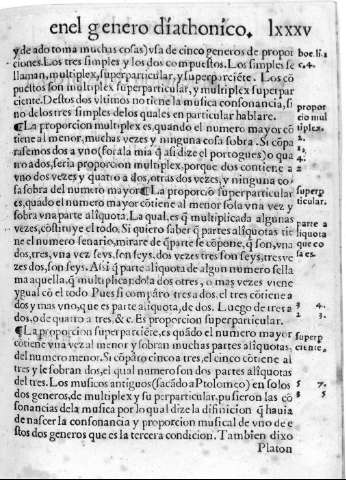 enel genero diathonico. lxxxv
y de ado toma muchas cosas) vsa de cinco generos de propor
ciones. Los tres simples y los dos compuestos. Los simples se
llaman, multiplex, superparticular, y superparciẽte. Los cõ
puestos son multiplex superparticular, y multiplex superpar
ciente. Destos dos vltimos no tiene la musica consonancia, si
no de los tres simples de los quales en particular hablare.
¶La proporcion multiplex es, quando el numero mayor cõ
tiene al menor, muchas vezes y ninguna cosa sobra. Si cõpa
rasemos dos a vno (foral a mia q̃ asi dize el portogues) o qua
tro a dos, seria proporcion multiplex, porque dos contiene a
vno dos vezes y quatro a dos, otras dos vezes, y ninguna co
sa sobra del numero mayor ¶La proporciõ superparticular
es, quado el numero mayor cõtiene al menor sola vna vez y
sobra vna parte aliquota. La qual, es q̃ multiplicada algunas
vezes, cõstituye el todo. Si quiero saber q̃ partes aliquotas tie
ne el numero senario, mirare de q̃ parte se cõpone, q̃ son, vna
dos, tres, vna vez seys, son seys. dos vezes tres son seys, tres ve
zes dos, son seys. Asi q̃ parte aliquota de algun numero se lla
ma aquella, q̃ multiplicada la dos otres, o mas vezes viene
ygual cõ el todo Pues si comparo tres a dos, el tres cõtiene a
dos y mas vno, que es parte aliquota, de dos. Luego de tres a
dos, o de quatro a tres. & c. Es proporcion superparticular.
¶La proporcion superparciẽte, es quãdo el numero mayor
cõtiene vna vez al menor y sobran muchas partes aliquotas,
del numero menor. Si cõparo cinco a tres, el cinco cõtiene al
tres y le sobran dos, el qual numero son dos partes aliquotas
del tres. Los musicos antiguos (sacãdo a Ptolomeo) en solos
dos generos, de multiplex y su perparticular, pusieron las cõ
sonancias de la musica por lo qual dize la difinicion q̃ hauia
de nascer la consonancia y proporcion musical de vno de e
stos dos generos que es la tercera condicion. Tambien dixo
Platon
boe. li. 2
c. 4.
propor
cio mul
tiplex.
2
1.
4.
2
superp
ticular.
parte a
liquota
que co
sa es.
3 4.
2 3.
superp
ciente.
5 7.
3 5